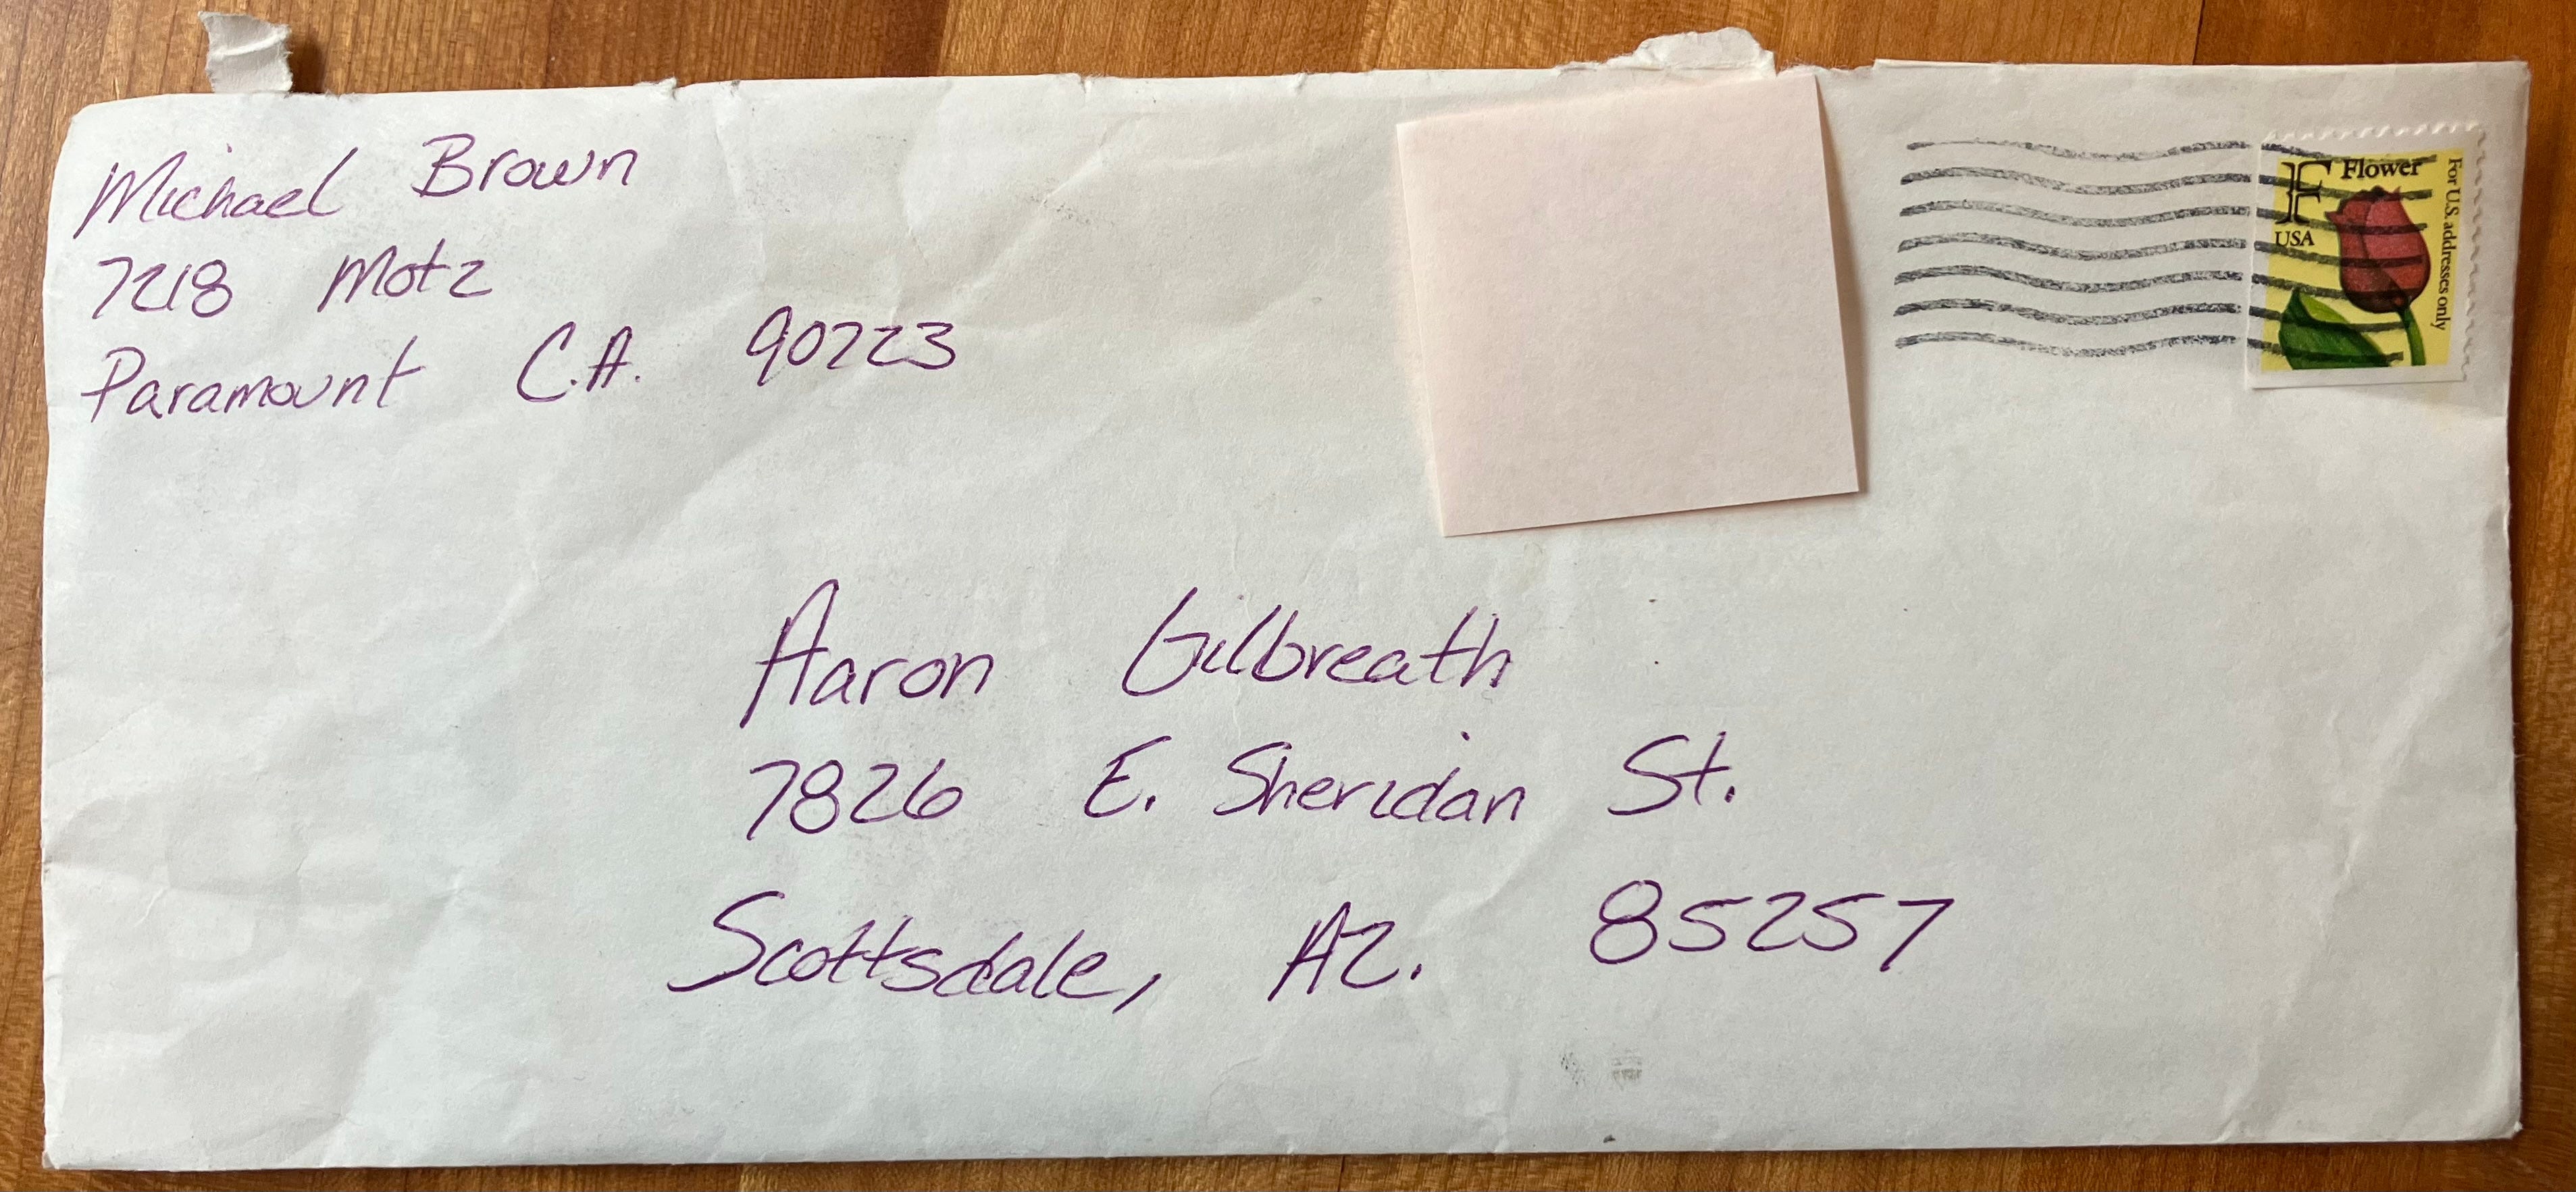 Michael Brown
7218 Motz
Paramount C.A. 90723
F Flower
USA
For U.S. addresses only
Aaron Gilbreath
7826 E. Sheridan St.
Scottsdale, AZ. 85257